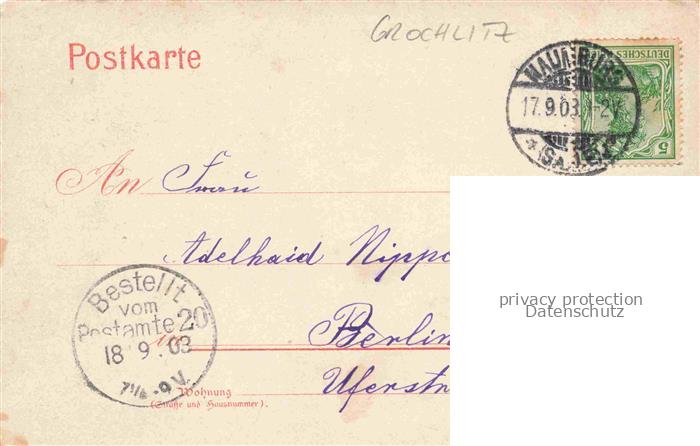 GROCHLITZ
Postkarte
NAUMBURG
17.9.03
(SAALE)
DEUTSCHES
5
An Frau
Adelhaid Nippo
privacy protection
Datenschutz
Bestellt
vom
Postamte 20
18 9. 03
7¼-9V.
in Berlin
Uferstr
Wohnung
(Straße und Hausnummer).